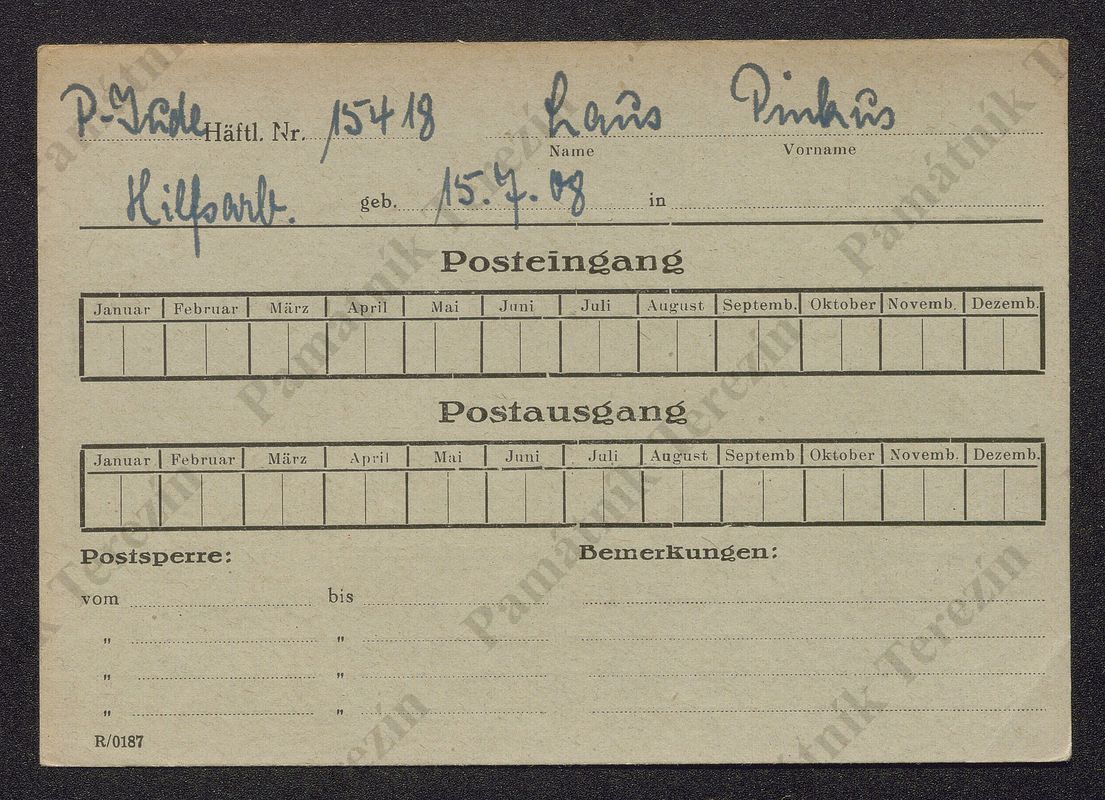 P-Jude Häftl. Nr. 15418 Laus Pinkus
Name Vorname
Hilfsarb. geb. 15.7.08 in
Posteingang
Januar Februar März April Mai Juni Juli August Septemb. Oktober Novemb. Dezemb.
Postausgang
Januar Februar März April Mai Juni Juli August Septemb Oktober Novemb. Dezemb.
Postsperre: Bemerkungen:
vom bis
" "
" "
" "
R/0187
Památník Terezín